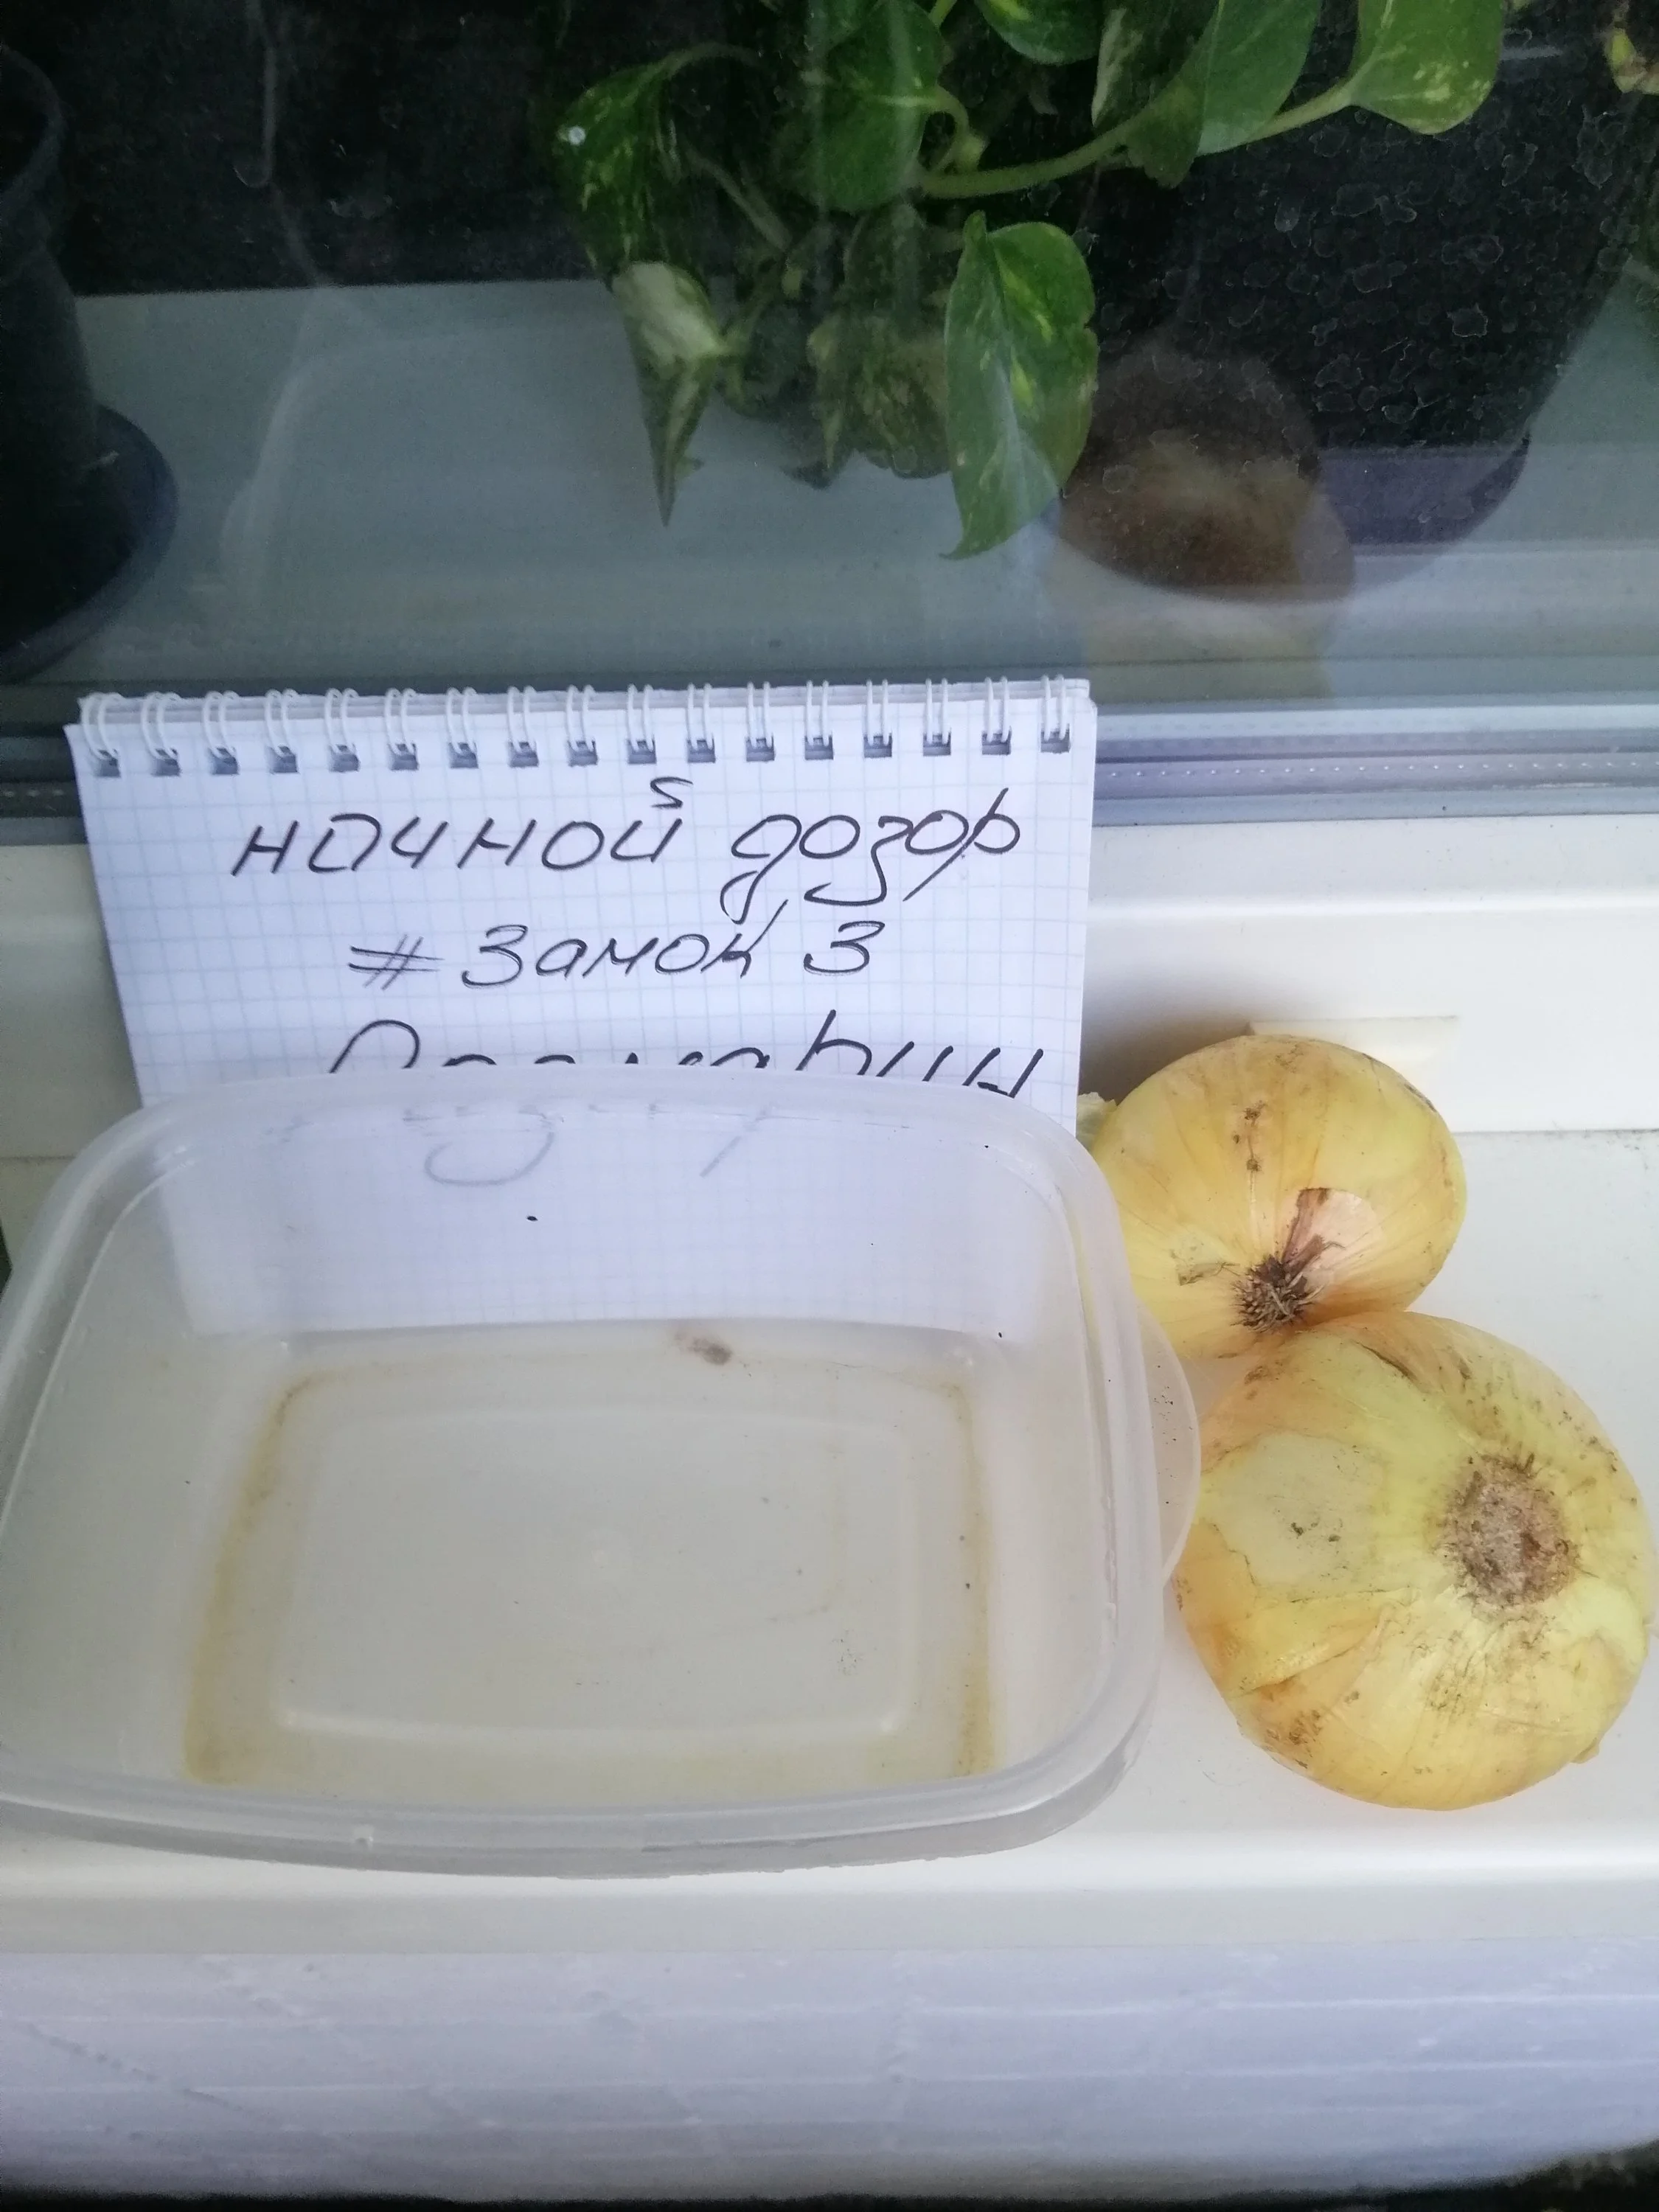 ночной дозор
# Замок 3